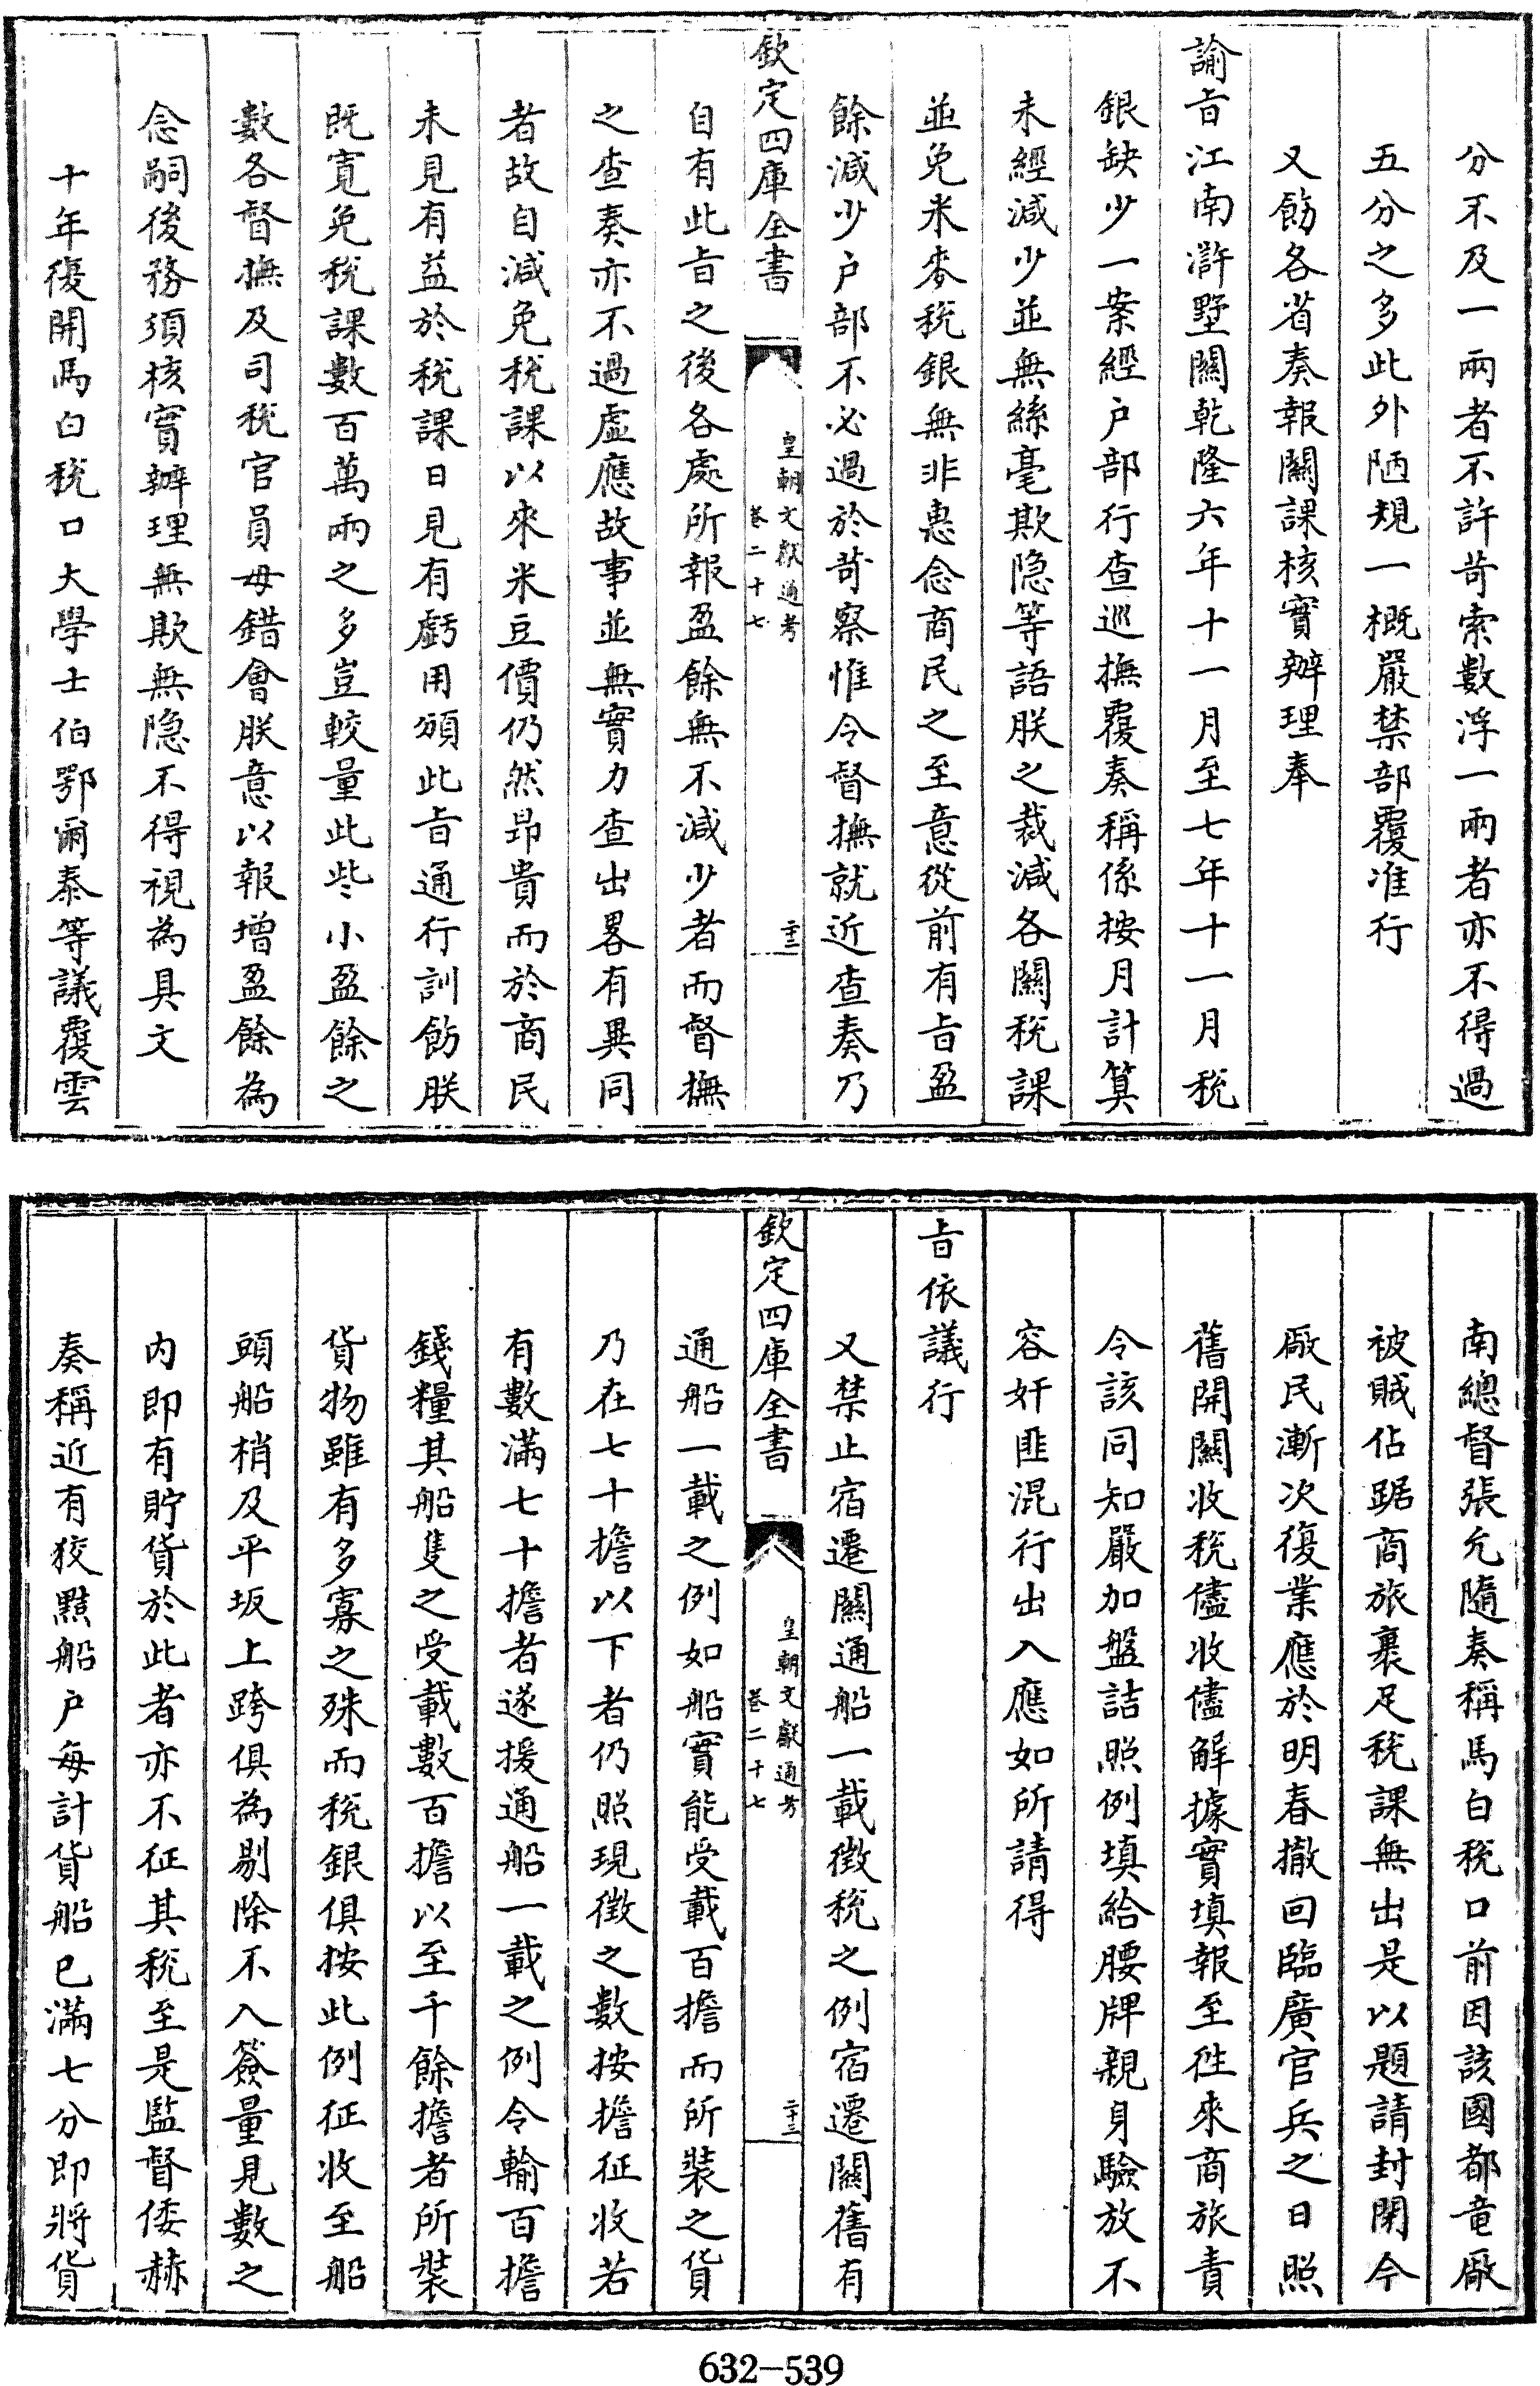 分不及一兩者不許苛索數浮一兩者亦不得過
五分之多此外陋規一概嚴禁部覆准行
又飭各省奏報關課核實辦理奉
諭㫖江南滸墅關乾隆六年十一月至七年十一月稅
銀缺少一案經户部行查巡撫覆奏稱係按月計算
未經減少並無絲毫欺隐等語朕之裁減各關稅課
並免米麥稅銀無非惠念商民之至意從前有㫖盈
餘減少户部不必過於苛察惟令督撫就近查奏乃
欽定四庫全書
皇朝文獻通考
卷二十七
二十三
自有此㫖之後各處所報盈餘無不減少者而督撫
之查奏亦不過虛應故事並無實力查出畧有異同
者故自減免稅課以來米豆價仍然昂貴而於商民
未見有益於稅課日見有虧用頒此㫖通行訓飭朕
既寛免稅課數百萬兩之多豈較量此些小盈餘之
數各督撫及司稅官員毋錯會朕意以報增盈餘為
念嗣後務須核實辦理無欺無隐不得視為具文
十年復開馬白稅口大學士伯鄂爾泰等議覆雲
南總督張允隨奏稱馬白稅口前因該國都竜厰
被賊佔踞商旅裹足稅課無出是以題請封閉今
厰民漸次復業應於明春撤回臨廣官兵之日照
舊開關收稅儘收儘解據實填報至徃來商旅責
令該同知嚴加盤詰照例填給腰牌親身驗放不
容奸匪混行出入應如所請得
㫖依議行
又禁止宿遷關通船一載徴稅之例宿遷關舊有
欽定四庫全書
皇朝文獻通考
卷二十七
二十三
通船一載之例如船實能受載百擔而所裝之貨
乃在七十擔以下者仍照現徴之數按擔征收若
有數滿七十擔者遂援通船一載之例令輸百擔
錢糧其船隻之受載數百擔以至千餘擔者所裝
貨物雖有多寡之殊而稅銀俱按此例征收至船
頭船梢及平坂上跨俱為剔除不入簽量見數之
内即有貯貨於此者亦不征其稅至是監督倭赫
奏稱近有狡黠船户每計貨船已滿七分即將貨
632-539